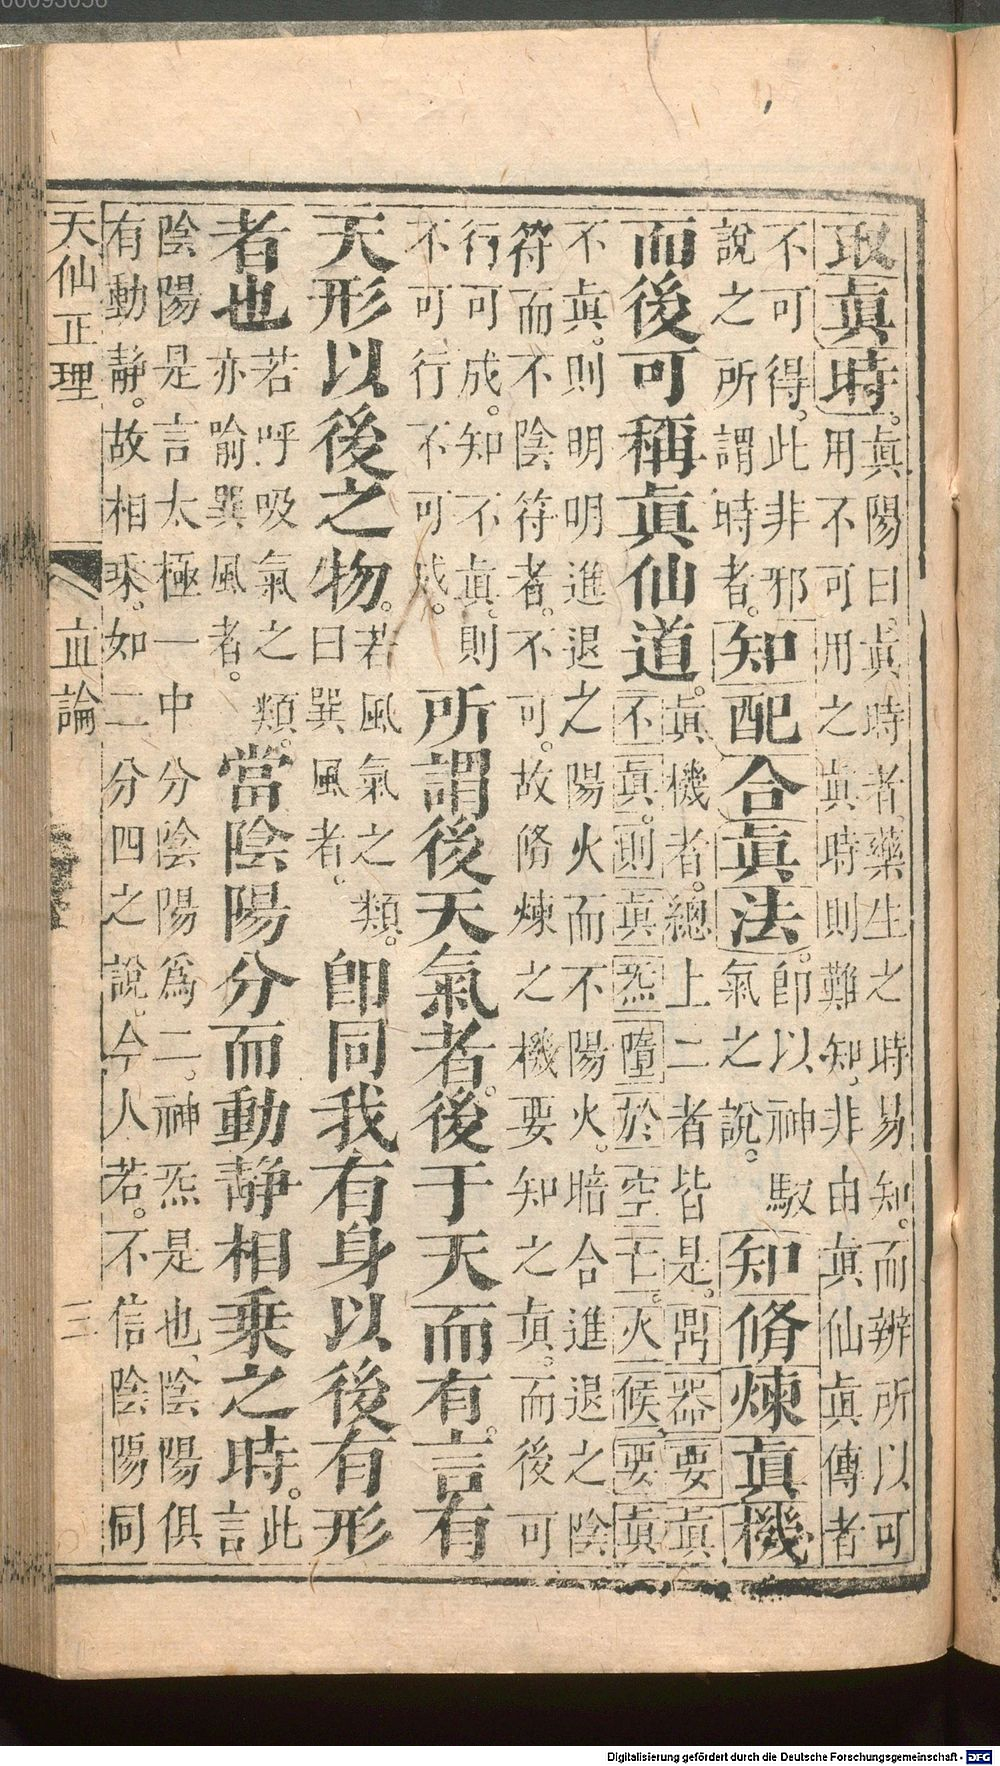 取眞時。眞陽曰。眞時者。藥生之時易知。而辨所以可
用不可用之眞時則難知。非由眞仙眞傳者
不可得。此非邪
說之所謂時者。知配合眞法。卽以神馭
氣之說。知脩煉眞機
而後可稱眞仙道。眞機者。總上二者皆是。鼎器要眞
不眞。則眞炁墮於空亡。火候要眞
不眞。則明明進退之陽火而不陽火。暗合進退之陰
符而不陰符者。不可。故脩煉之機要知之眞。而後可
行可成。知不眞。則
不可行不可成。所謂後天氣者。後于天而有。言有
天形以後之物。若風氣之類。
曰巽風者。卽同我有身以後有形
者也若呼吸氣之類。
亦喻巽風者。當陰陽分而動靜相乘之時。此
言
陰陽是言太極一中分陰陽爲二。神炁是也、陰陽俱
有動靜。故相乘。如二分四之說。今人若。不信陰陽同
天仙正理 直論 三
00093056
Digitalisierung gefördert durch die Deutsche Forschungsgemeinschaft - DFG